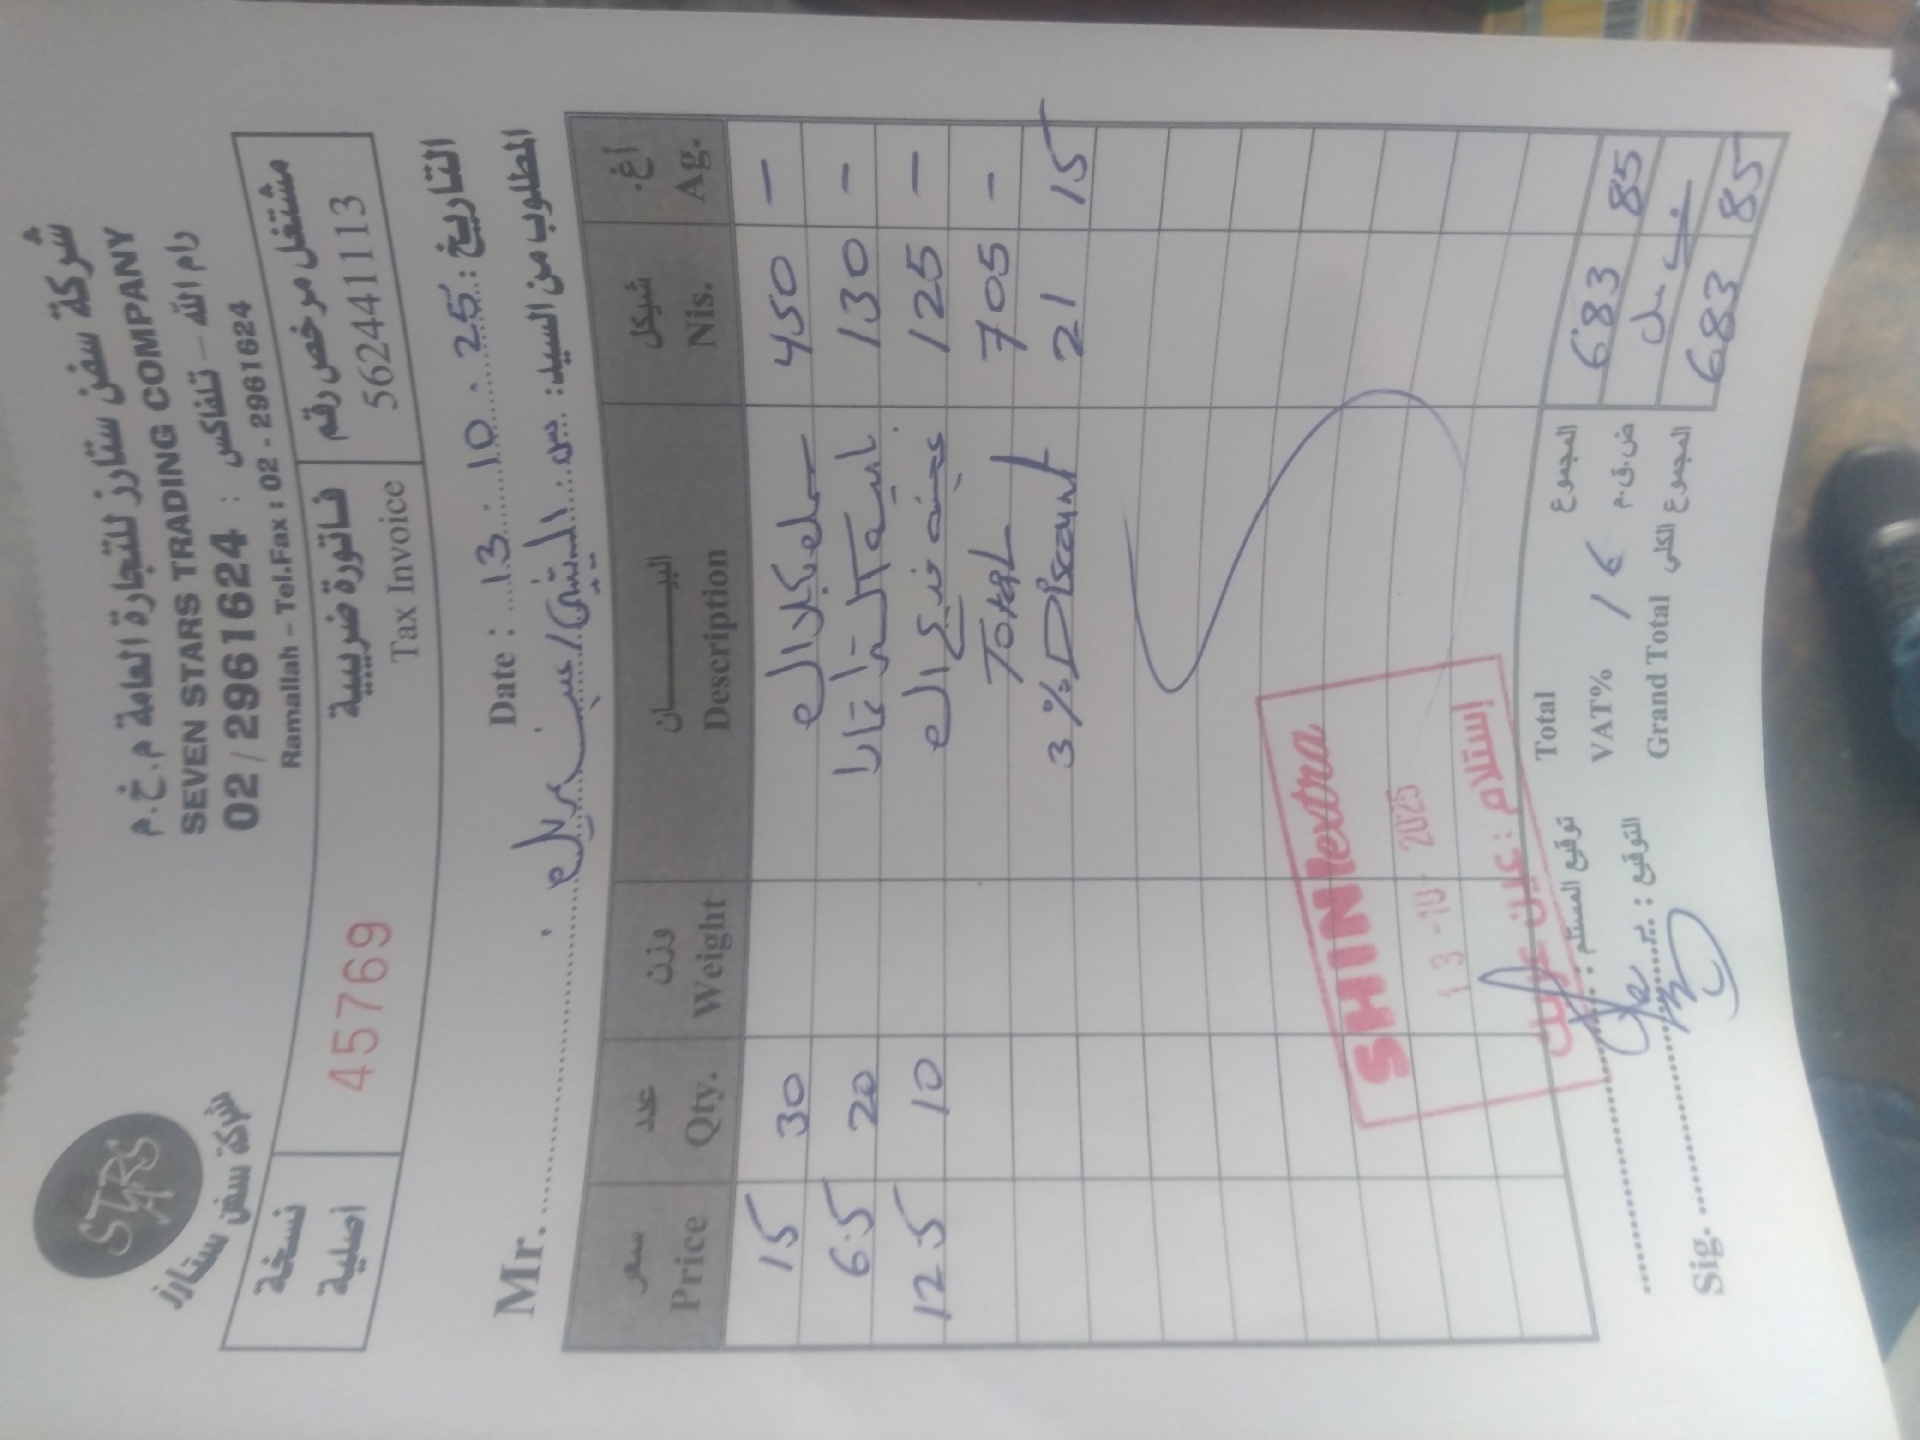 STARS
شركة سفن ستارز
شركة سفن ستارز للتجارة العامة م.خ.م
SEVEN STARS TRADING COMPANY
رام الله - تلفاكس : 02/2961624
Ramallah - Tel.Fax : 02 - 2961624
نسخة اصلية
45769
فاتورة ضريبية
Tax Invoice
مشتغل مرخص رقم
562441113
Date : 13 . 10 . 25 التاريخ :
Mr. المطلوب من السيد:
سعر عدد وزن البيـــــان شيكل أغ.
Price Qty. Weight Description Nis. Ag.
15 30 450 -
6.5 20 130 -
12.5 10 125 -
Total 705 -
3% Discount 21 15
SHINI extra
13 -10- 2025
إستلام : عين عريك
توقيع المستلم :
Total المجموع 683 85
التوقيع :
VAT% 16 ض.ق.م
Sig.
Grand Total المجموع الكلي 683 85